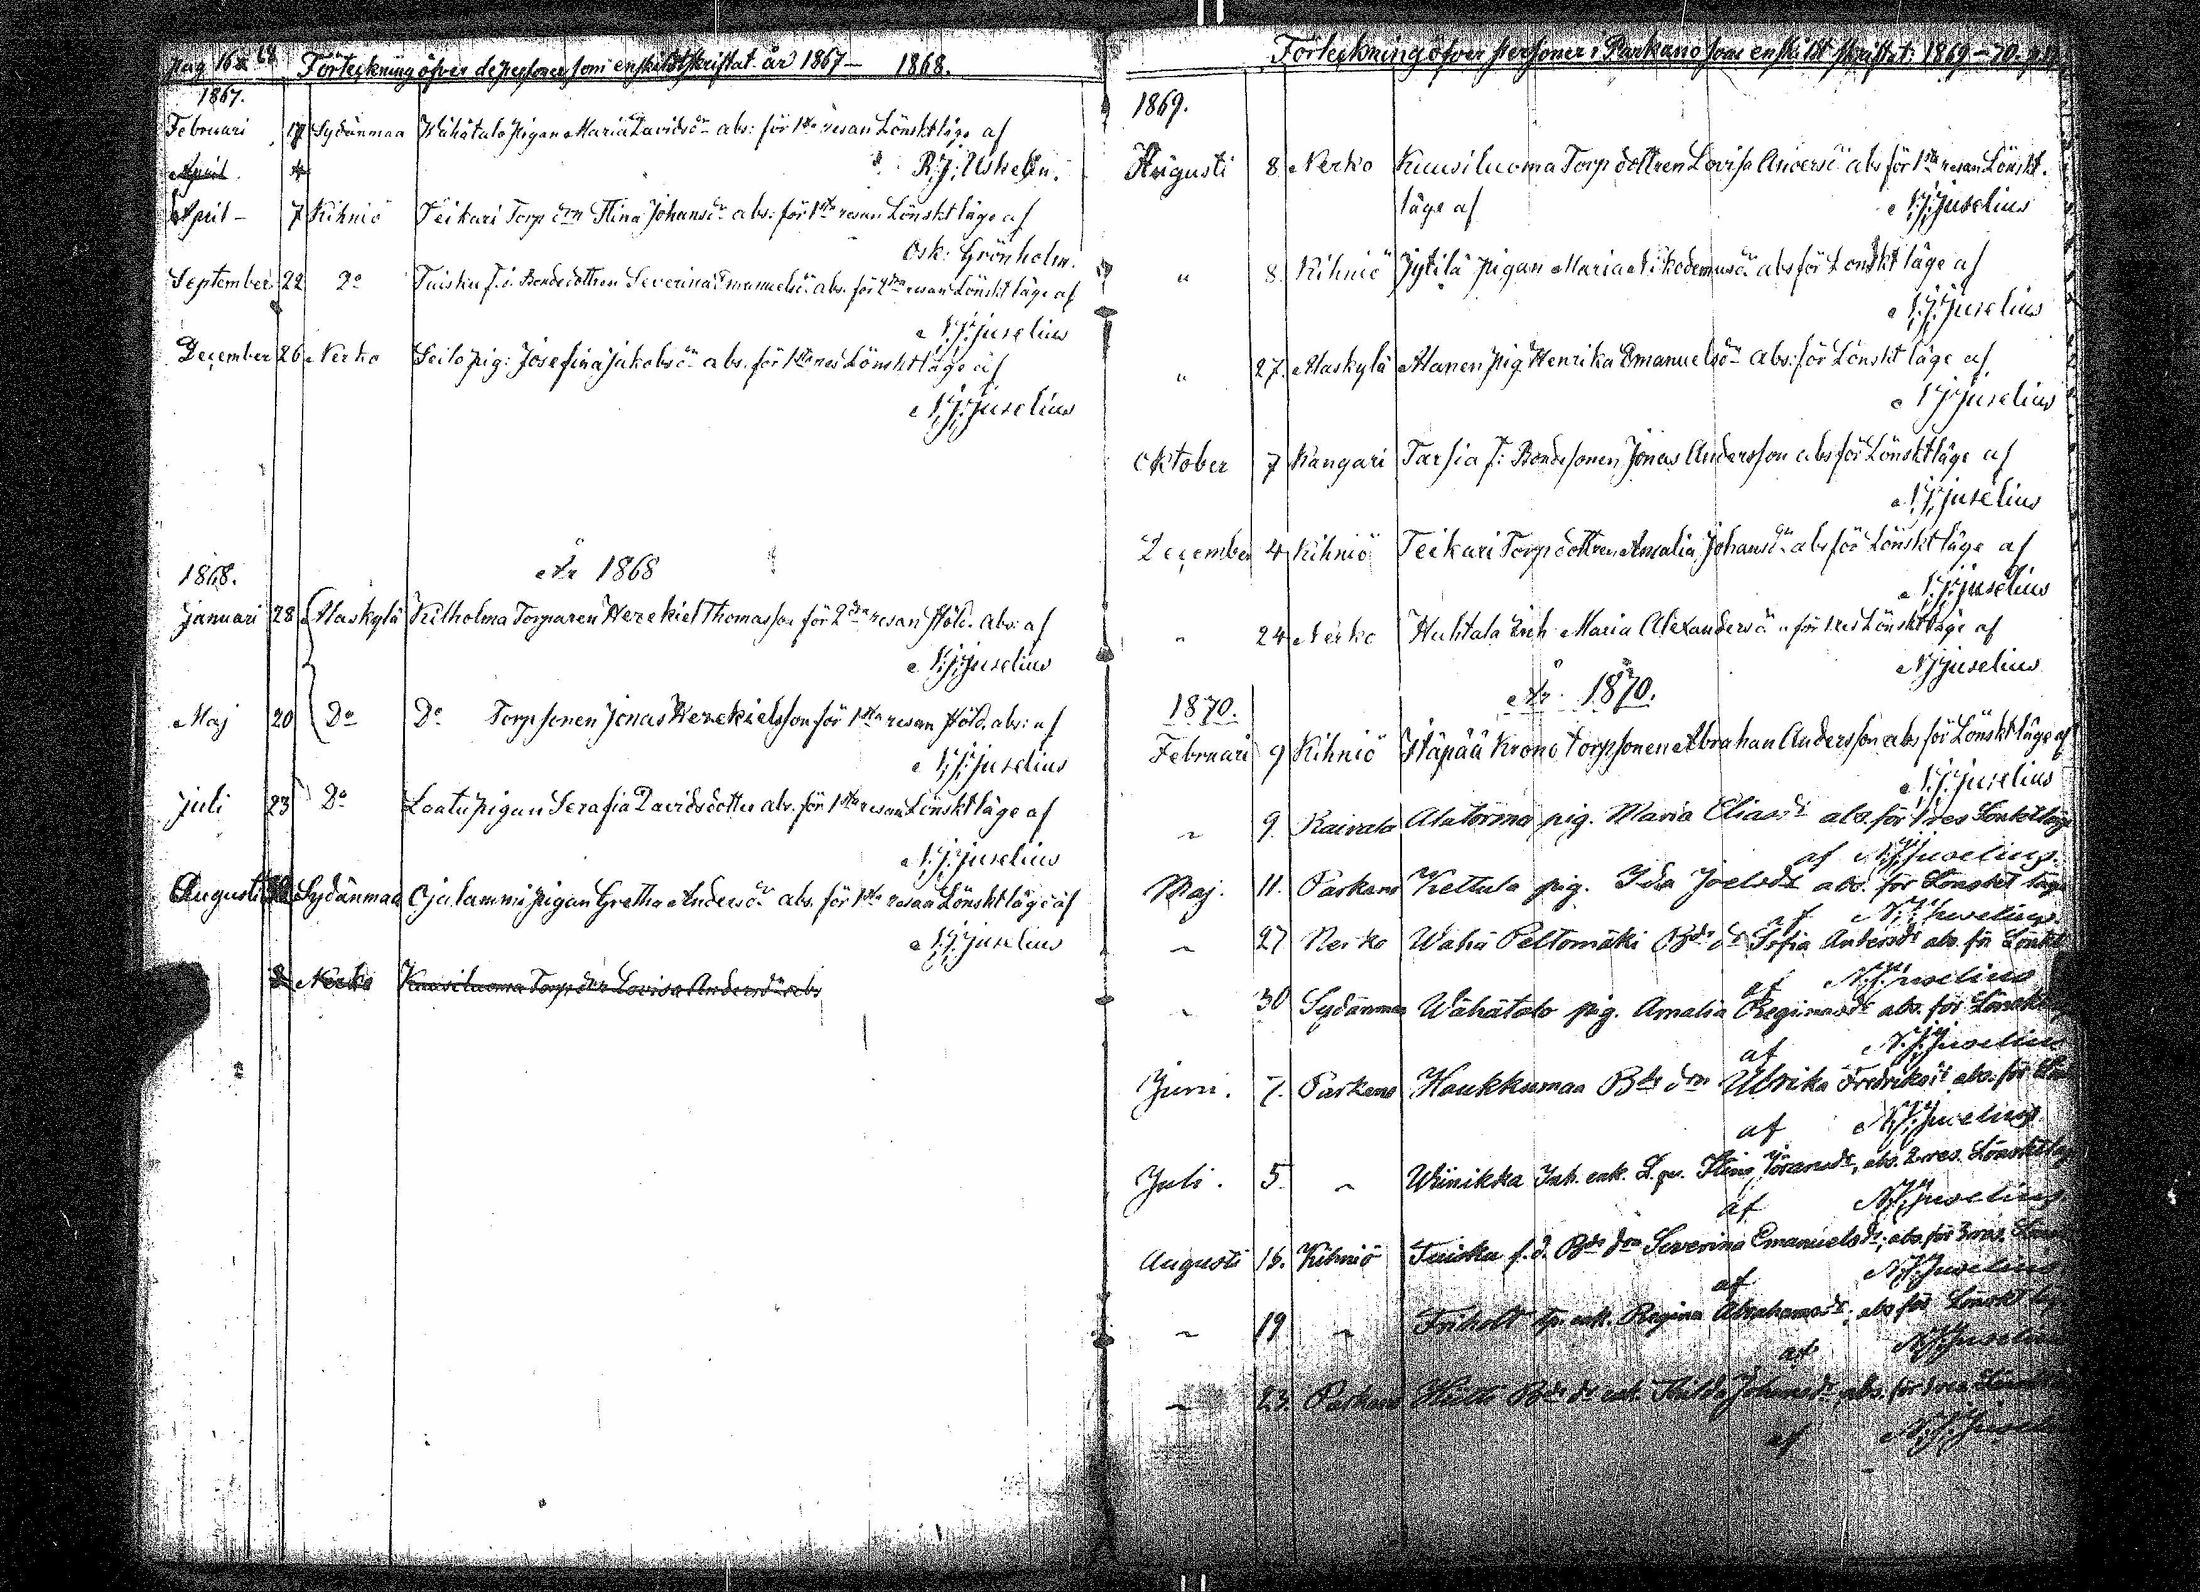 pag 16
Förteckning öfver de personer som enskildt skriftat år 1867 — 1868.
1867.
Februari 17 Sydänmaa Wähätalo pigan Maria Davidsdr abs: för 1sta resan Lönsktläge af
R. J. Ushelin.
April
April – 7 Kihniö Teikari Torp drn Stina Johansdr abs: för 1sta resan Lönsktläge af
Osk: Grönholm.
September 22 Do Tuisku f. d. Bondedottren Severina Emanuelsdr abs. för 2dra resan Lönsktläge af
N. J. Juselius
December 26 Nerko Seilo pig: Josefina Jakobsdr abs. för 1sta res Lönsktläge af
N. J. Juselius
År 1868
1868.
Januari 28 Alaskylä Kitholma Torparen Hezekiel Thomasson för 2dra resan stöld. abs: af
N. J. Juselius
Maj 20 Do Do Torpsonen Jonas Hezekielsson för 1sta resan stöld. abs: af
N. J. Juselius
Juli 23 Do Laatu pigan Serafia Davidsdotter abs. för 1sta resan Lönsktläge af
N. J. Juselius
Augusti Sydänmaa Ojalammi pigan Gretha Andersdr abs. för 1sta resan Lönsktläge af
N. J. Juselius
8 Nerko Kuusiluoma Torp drn Lovisa Andersdr abs
Förteckning öfver personer i Parkano som enskildt skriftat: 1869 – 70.
1869.
Augusti 8 Nerko Kuusiluoma Torp dottren Lovisa Andersdr abs för 1sta resan Lönskt.
läge af N. J. Juselius
" 8 Kihniö Jytilä pigan Maria Nikodemusdr abs för Lönsktläge af
N. J. Juselius
" 27. Alaskylä Alanen pig. Henrika Emanuelsdr abs: för Lönsktläge af
N. J. Juselius
Oktober 7 Kangari Tarsia f: Bondesonen Jonas Andersson abs för Lönsktläge af
N. J. Juselius
December 4 Kihniö Teikari Torp dottren Amalia Johansdr abs för Lönsktläge af
N. J. Juselius
" 24 Nerko Huhtala Inh Maria Alexandersdr för res Lönsktläge af
N. J. Juselius
År 1870.
1870.
Februari 9 Kihniö Itäpää Krono torpsonen Abraham Andersson abs för Lönsktläge af
N. J. Juselius
" 9. Raivala Alatorma pig. Maria Eliasdr abs. för 1 res Lönsktläge
af N. J. Juselius.
Maj. 11. Parkano Kettula pig. Ida Joelsdr abs. för Lönsktläge
af N. J. Juselius.
" 27 Nerko Wähä Peltomäki Bde dr Sofia Andersdr abs. för Lönskt
af N. J. Juselius
" 30 Sydänmaa Wähätalo pig. Amalia abs. för Lönskt
af N. J. Juselius
Juni. 7. Parkano Haukkamaa Bde drn Ulrika Fredriksdr abs. för
af N. J. Juselius
Juli. 5. " Wiinikka Inh. enk. Stina Göransdr, abs. 2 res. Lönsktläge
af N. J. Juselius.
Augusti 16. Kihniö Tuisku f. d. Bde drn Severina Emanuelsdr; abs. för 3 res.
af N. J. Juselius
" 19 " Friholt enk. Regina Abrahamsdr; abs för Lönskt
af N. J. Juselius
" 23. Parkano Bde dr Johansdr abs. för 1 res
af N. J. Juselius